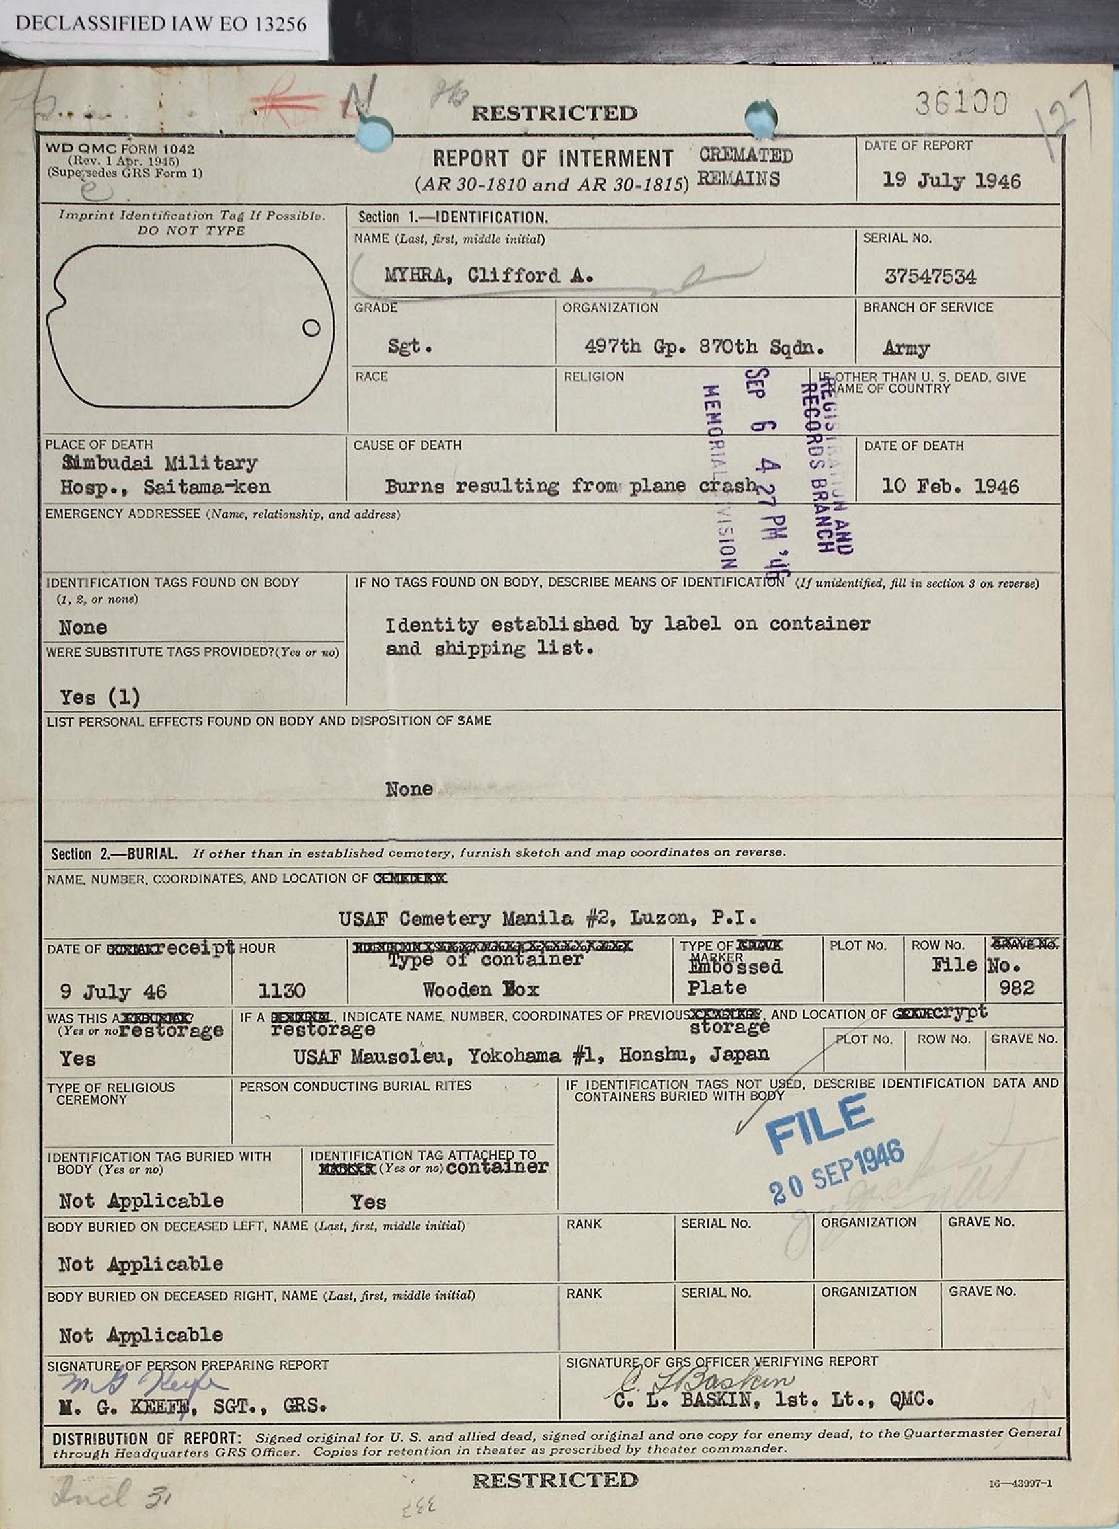 DECLASSIFIED IAW EO 13256
RESTRICTED
36100
127
WD QMC FORM 1042
(Rev. 1 Apr. 1945)
(Supersedes GRS Form 1)
REPORT OF INTERMENT
(AR 30-1810 and AR 30-1815)
CREMATED
REMAINS
DATE OF REPORT
19 July 1946
Imprint Identification Tag If Possible.
DO NOT TYPE
Section 1.—IDENTIFICATION.
NAME (Last, first, middle initial)
MYHRA, Clifford A.
SERIAL No.
37547534
GRADE
Sgt.
ORGANIZATION
497th Gp. 870th Sqdn.
BRANCH OF SERVICE
Army
RACE
RELIGION
IF OTHER THAN U. S. DEAD, GIVE
NAME OF COUNTRY
REGISTRATION AND
RECORDS BRANCH
SEP 6 4 27 PM '46
MEMORIAL DIVISION
PLACE OF DEATH
Simbudai Military
Hosp., Saitama-ken
CAUSE OF DEATH
Burns resulting from plane crash
DATE OF DEATH
10 Feb. 1946
EMERGENCY ADDRESSEE (Name, relationship, and address)
IDENTIFICATION TAGS FOUND ON BODY
(1, 2, or none)
None
IF NO TAGS FOUND ON BODY, DESCRIBE MEANS OF IDENTIFICATION (If unidentified, fill in section 3 on reverse)
Identity established by label on container
and shipping list.
WERE SUBSTITUTE TAGS PROVIDED? (Yes or no)
Yes (1)
LIST PERSONAL EFFECTS FOUND ON BODY AND DISPOSITION OF SAME
None
Section 2.—BURIAL. If other than in established cemetery, furnish sketch and map coordinates on reverse.
NAME, NUMBER, COORDINATES, AND LOCATION OF CEMETERY
USAF Cemetery Manila #2, Luzon, P.I.
DATE OF receipt
9 July 46
HOUR
1130
Type of container
Wooden Box
TYPE OF
MARKER
Embossed
Plate
PLOT No.
ROW No.
GRAVE No.
File No.
982
WAS THIS A
(Yes or no) restorage
Yes
IF A , INDICATE NAME, NUMBER, COORDINATES OF PREVIOUS , AND LOCATION OF crypt
restorage
storage
USAF Mausoleu, Yokohama #1, Honshu, Japan
PLOT No.
ROW No.
GRAVE No.
TYPE OF RELIGIOUS
CEREMONY
PERSON CONDUCTING BURIAL RITES
IF IDENTIFICATION TAGS NOT USED, DESCRIBE IDENTIFICATION DATA AND
CONTAINERS BURIED WITH BODY
FILE
20 SEP 1946
IDENTIFICATION TAG BURIED WITH
BODY (Yes or no)
Not Applicable
IDENTIFICATION TAG ATTACHED TO
MARKER (Yes or no) container
Yes
BODY BURIED ON DECEASED LEFT, NAME (Last, first, middle initial)
Not Applicable
RANK
SERIAL No.
ORGANIZATION
GRAVE No.
BODY BURIED ON DECEASED RIGHT, NAME (Last, first, middle initial)
Not Applicable
RANK
SERIAL No.
ORGANIZATION
GRAVE No.
SIGNATURE OF PERSON PREPARING REPORT
M G Keefe
M. G. KEEFE, SGT., GRS.
SIGNATURE OF GRS OFFICER VERIFYING REPORT
C. L. Baskin
C. L. BASKIN, 1st. Lt., QMC.
DISTRIBUTION OF REPORT: Signed original for U. S. and allied dead, signed original and one copy for enemy dead, to the Quartermaster General
through Headquarters GRS Officer. Copies for retention in theater as prescribed by theater commander.
RESTRICTED
16—43997-1
Incl 31